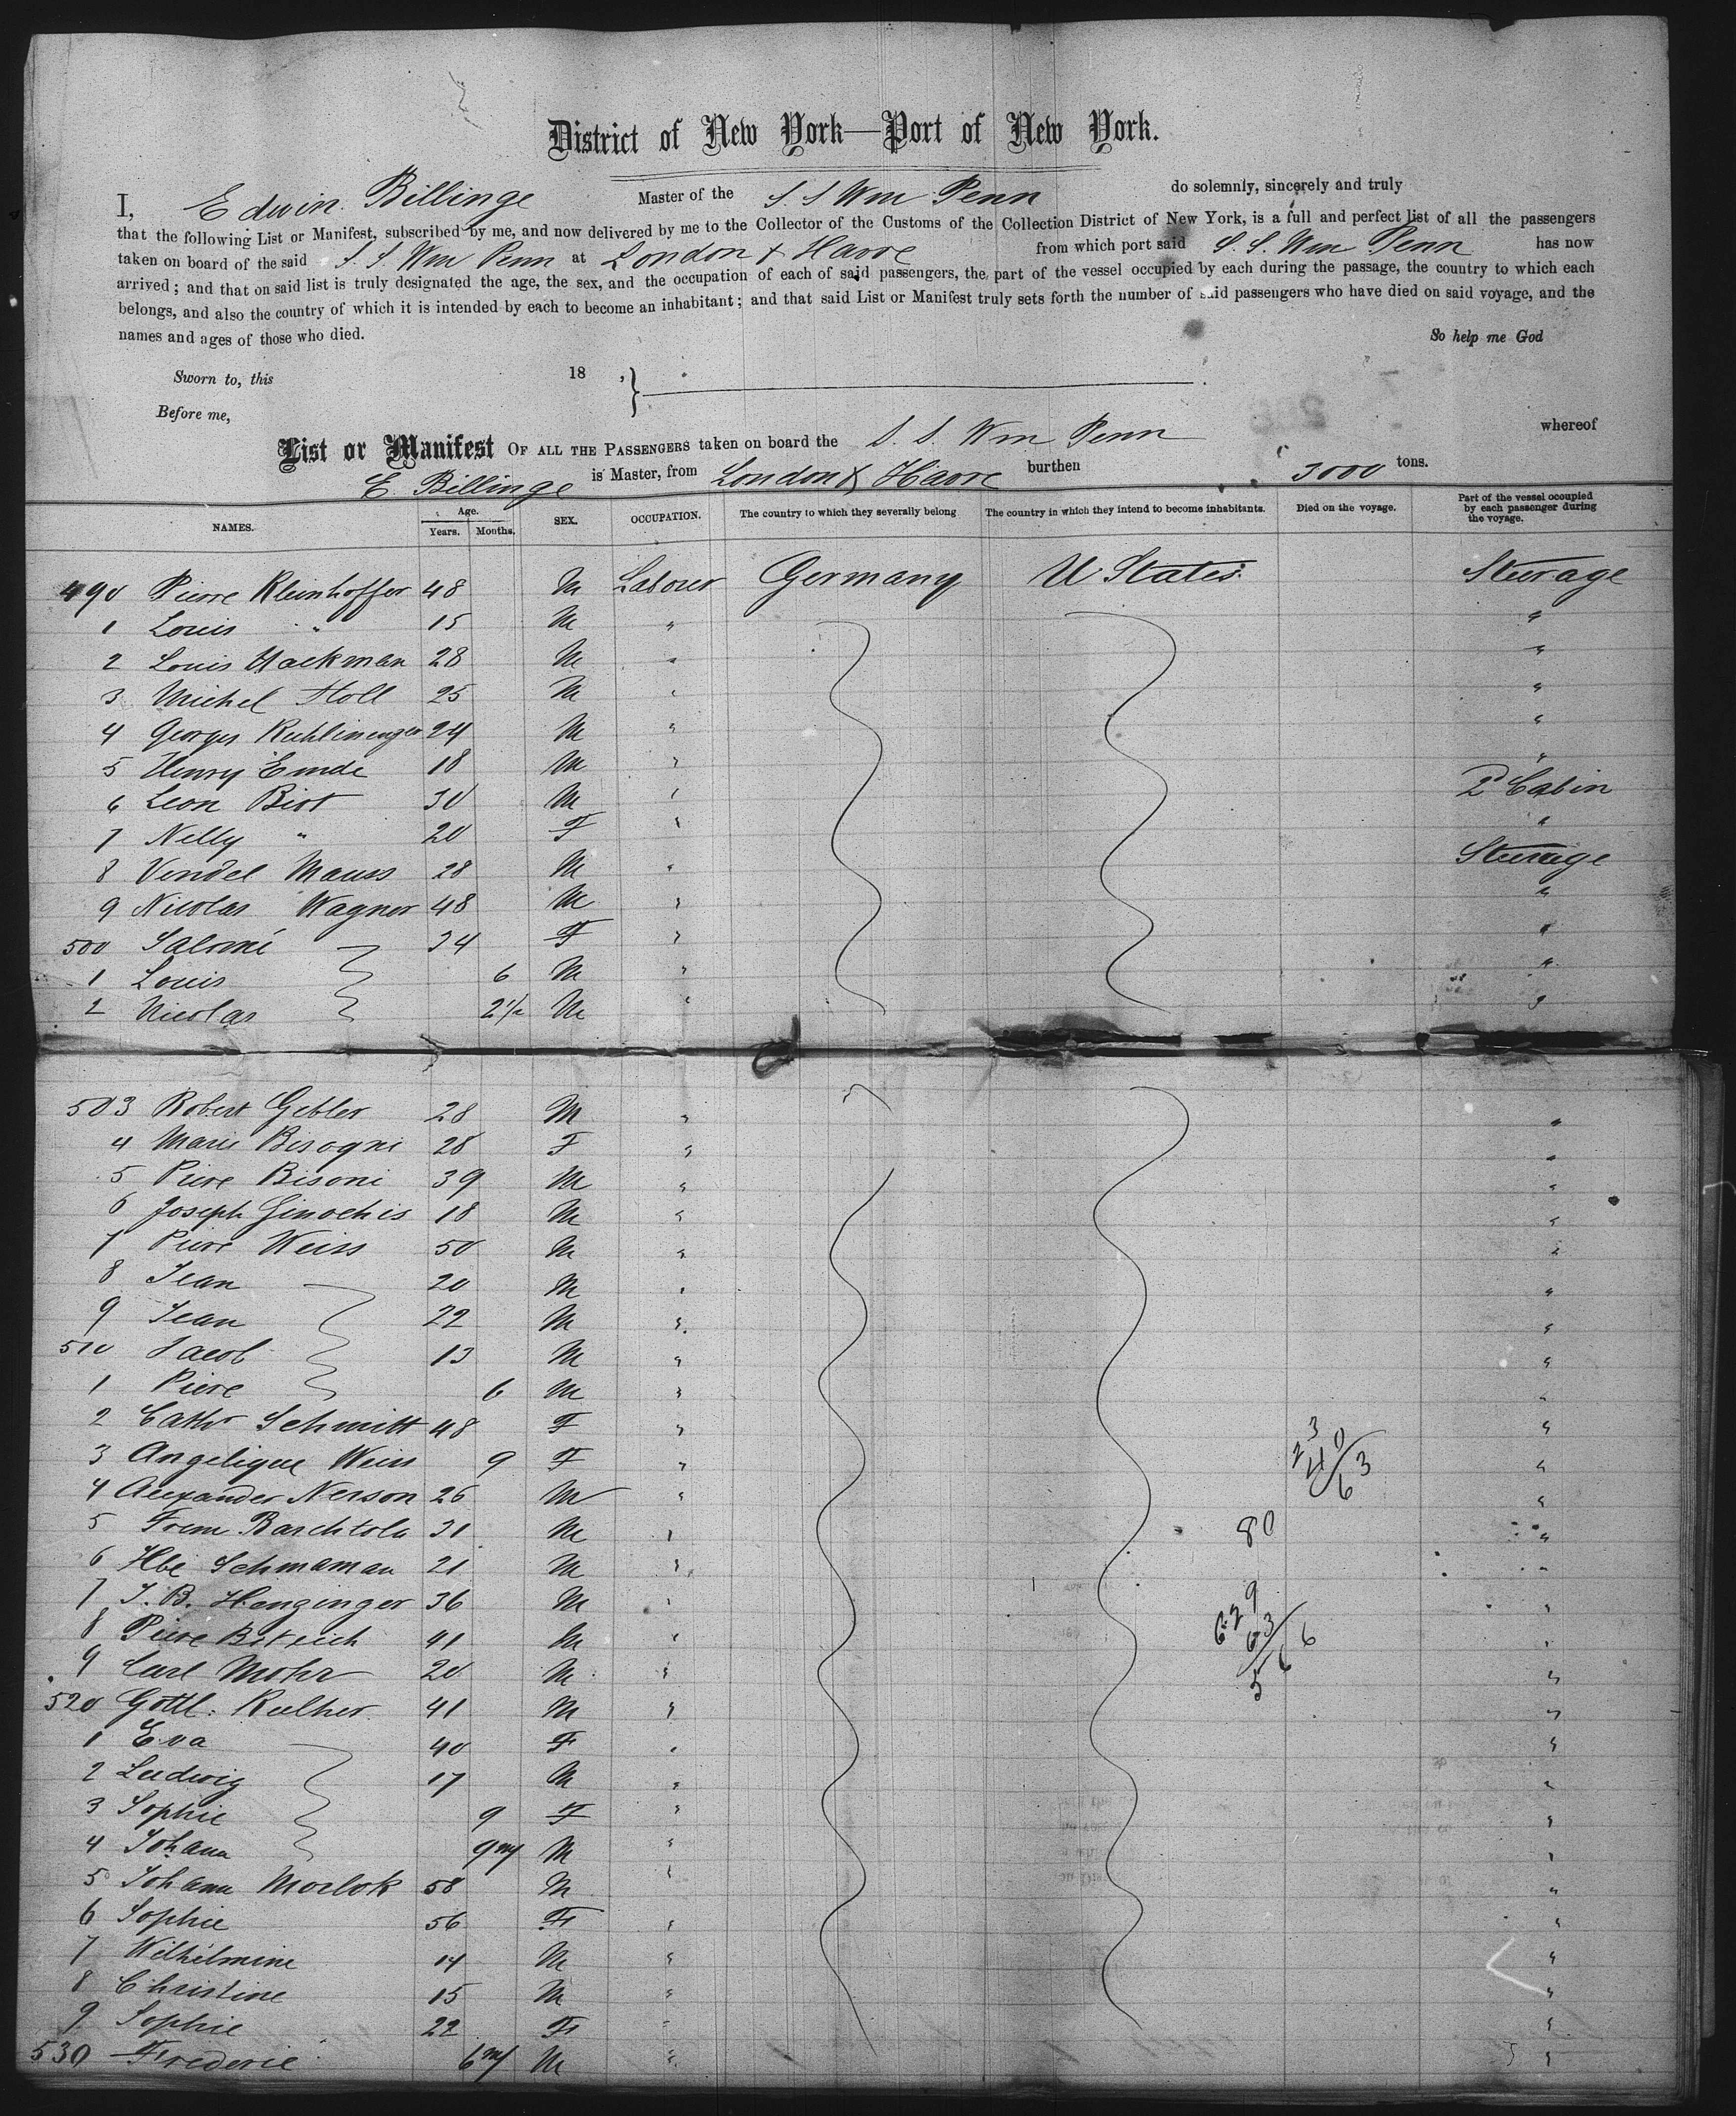 District of New York—Port of New York.
I, Edwin Billinge Master of the S. S Wm Penn do solemnly, sincerely and truly
that the following List or Manifest, subscribed by me, and now delivered by me to the Collector of the Customs of the Collection District of New York, is a full and perfect list of all the passengers
taken on board of the said S. S Wm Penn at London & Havre from which port said S. S. Wm Penn has now
arrived; and that on said list is truly designated the age, the sex, and the occupation of each of said passengers, the part of the vessel occupied by each during the passage, the country to which each
belongs, and also the country of which it is intended by each to become an inhabitant; and that said List or Manifest truly sets forth the number of said passengers who have died on said voyage, and the
names and ages of those who died. So help me God
Sworn to, this 18 ,
Before me,
List or Manifest OF ALL THE PASSENGERS taken on board the S. S. Wm Penn whereof
E. Billinge is Master, from London & Havre burthen 3000 tons.
NAMES. Age. Years. Months. SEX. OCCUPATION. The country to which they severally belong The country in which they intend to become inhabitants. Died on the voyage. Part of the vessel occupied by each passenger during the voyage.
490 Pierre Kleinhoffer 48 M Labour Germany U States Steerage
1 Louis " 15 M " "
2 Louis Hackman 28 M " "
3 Michel Stoll 25 M " "
4 Georges 24 M " "
5 Henry Emde 18 M " "
6 Leon Biot 30 M " 2d Cabin
7 Nelly " 20 F " "
8 Vendel Mauss 28 M " Steerage
9 Nicolas Wagner 48 M " "
500 Salomé 34 F " "
1 Louis 6 M " "
2 Nicolas 2 1/2 M " "
503 Robert Gebler 28 M " "
4 Marie Bisogni 28 F " "
5 Piere Bisoni 39 M " "
6 Joseph Ginochis 18 M " "
7 Piere Weiss 50 M " "
8 Jean 20 M " "
9 Jean 22 M " "
510 Jacob 13 M " "
1 Piere 6 M " "
2 Cathr Schmitt 48 F " "
3 Angelique Weiss 9 F " "
4 Alexander Nerson 26 M " "
5 31 M " "
6 Schmaman 21 M " "
7 J. B. Henginger 36 M " "
8 Piere 41 M " "
9 Carl Mohr 20 M " "
520 Gottl. Kelher 41 M " "
1 Eva 40 F " "
2 Ludwig 17 M " "
3 Sophie 9 F " "
4 Johann 9 M " "
5 Johann Morlok 58 M " "
6 Sophie 56 F " "
7 Wilhelmine 14 M " "
8 Christine 15 M " "
9 Sophie 22 F " "
530 Frederic 6 M " "
23
40
63
80
629
63
566